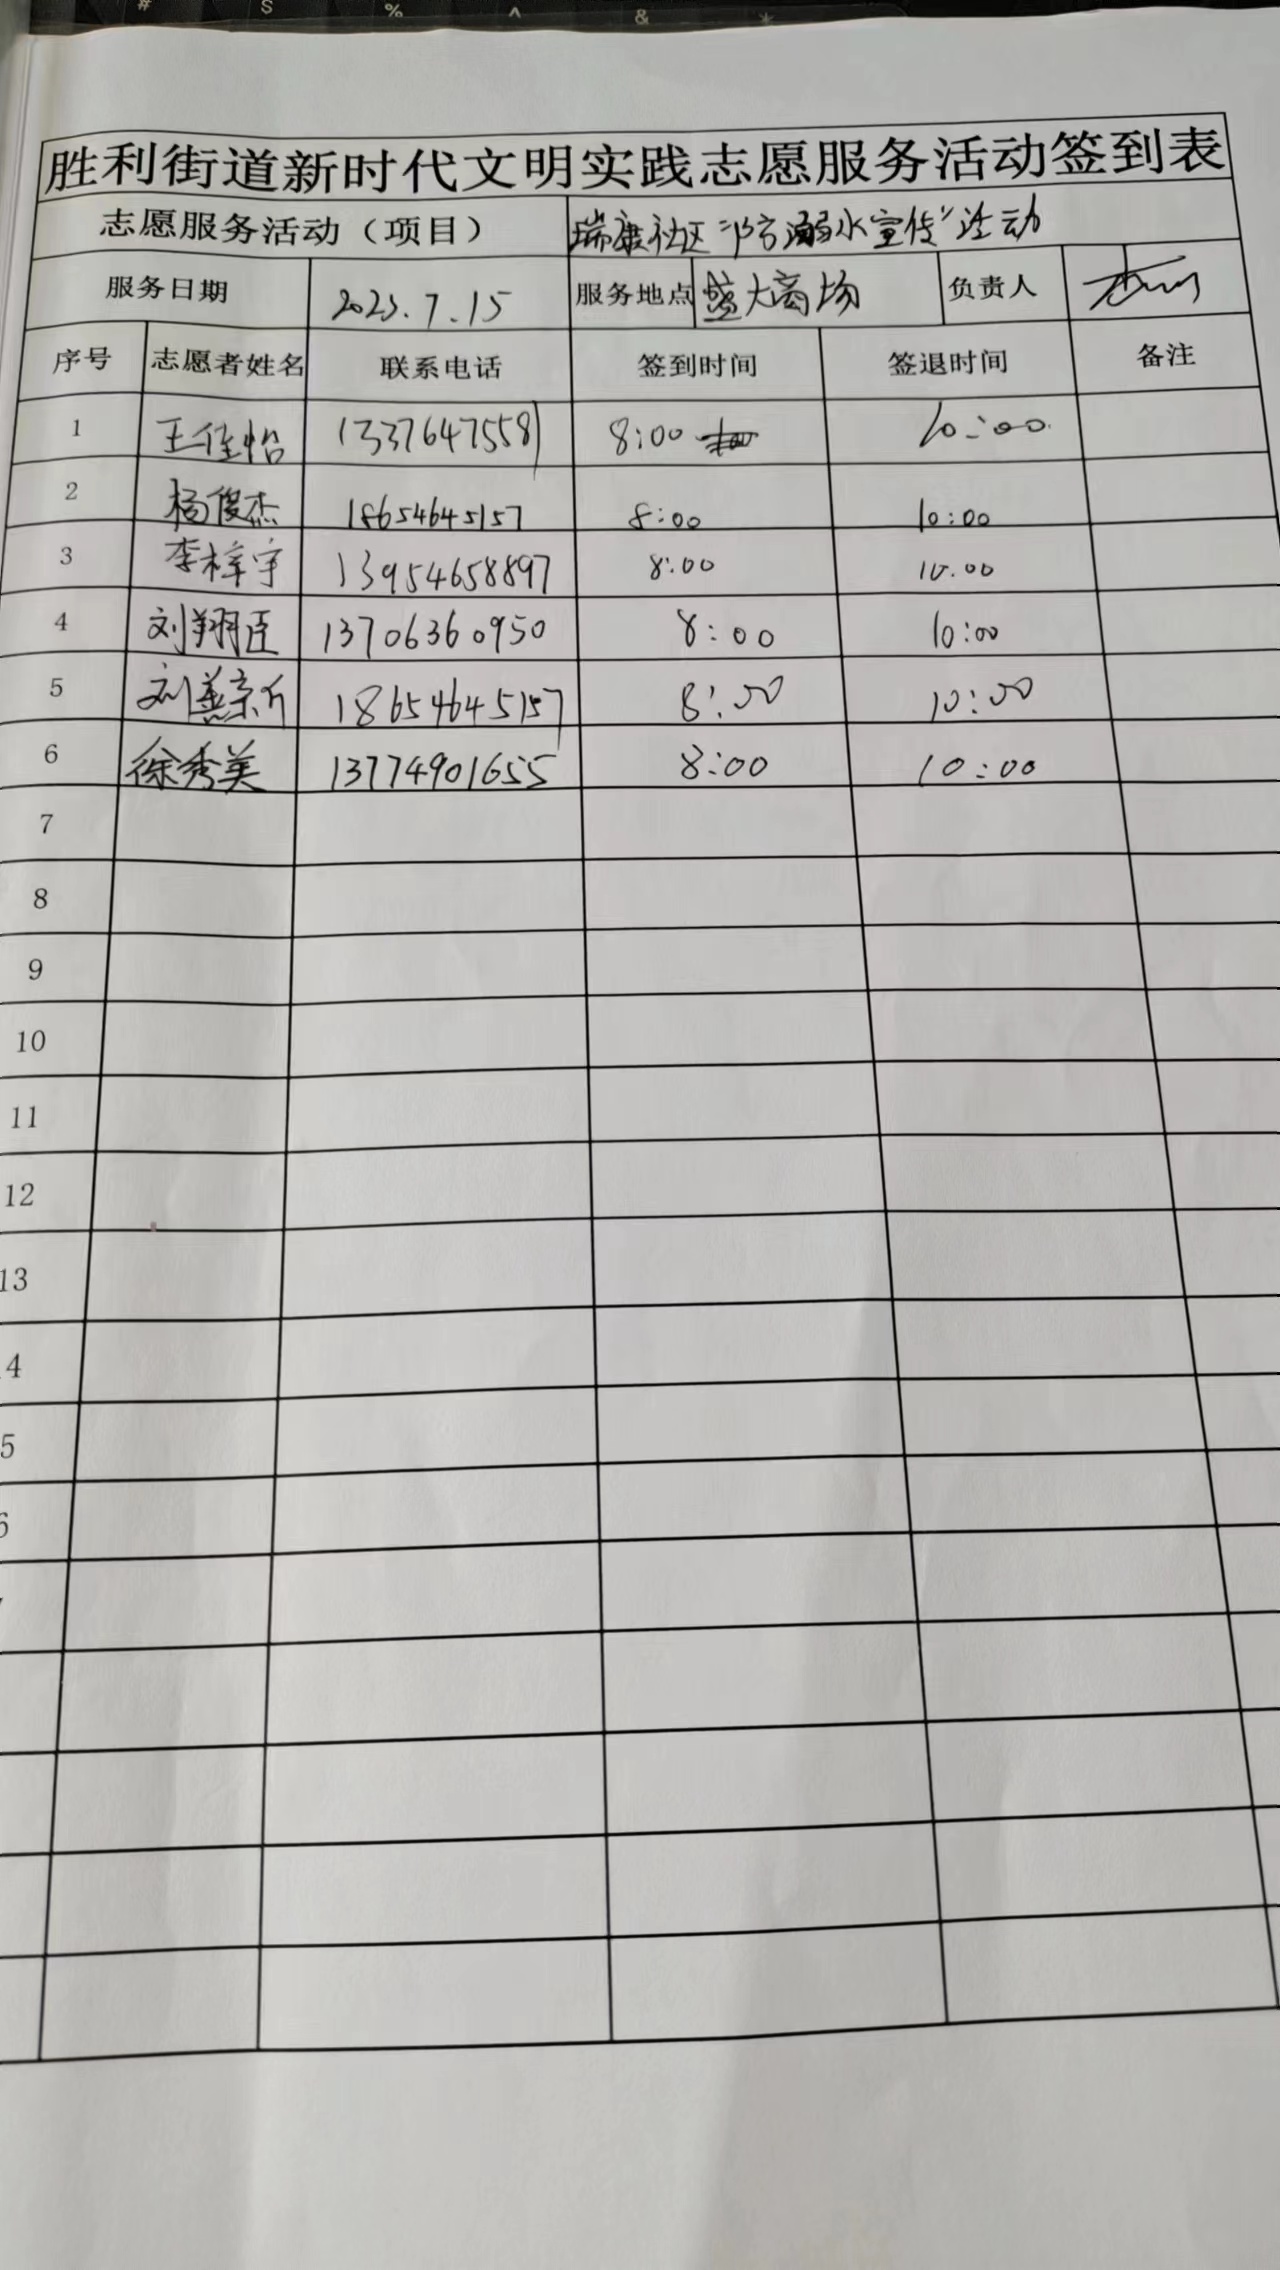 # $ % ^ & *
胜利街道新时代文明实践志愿服务活动签到表
志愿服务活动（项目） 瑞康社区“防溺水宣传”活动
服务日期 2023.7.15 服务地点 盛大商场 负责人
序号 志愿者姓名 联系电话 签到时间 签退时间 备注
1 王佳怡 13376475581 8:00 10:00
2 杨俊杰 18654645157 8:00 10:00
3 李梓宇 13954658897 8:00 10:00
4 刘翔臣 13706360950 8:00 10:00
5 刘 18654645157 8:00 10:00
6 徐秀美 13774901655 8:00 10:00
7
8
9
10
11
12
13
4
5
6